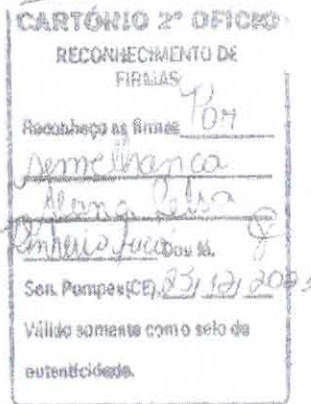 CARTÓRIO 2º OFICIO
RECONHECIMENTO DE
FIRMAS
Reconheço as firmas Por
semelhança
Pinheiro Dou fé.
Sen. Pompeu(CE), 23/12/202
Válido somente com o selo de
autenticidade.